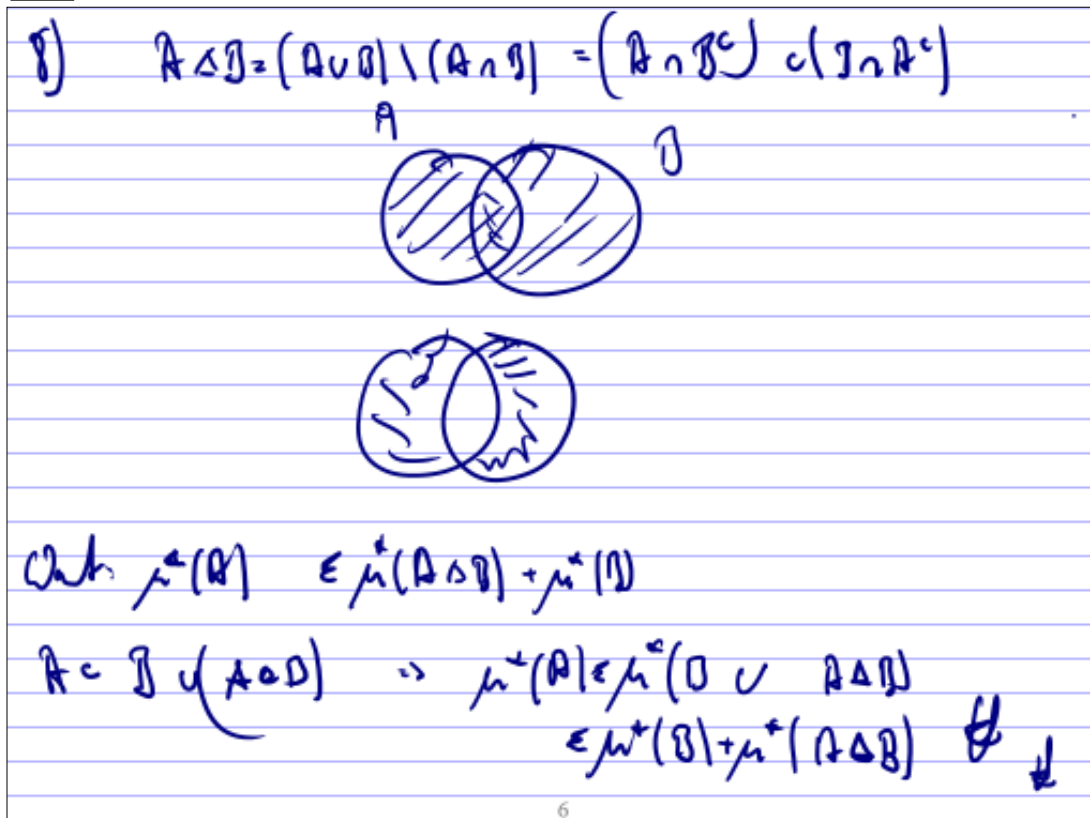 8) A △ B = (A ∪ B) \ (A ∩ B) = (A ∩ Bᶜ) ∪ (B ∩ Aᶜ)
A
B
μ*(A) ≤ μ*(A △ B) + μ*(B)
A ⊂ B ∪ (A △ B) ⇒ μ*(A) ≤ μ*(B ∪ A △ B)
≤ μ*(B) + μ*(A △ B)
6